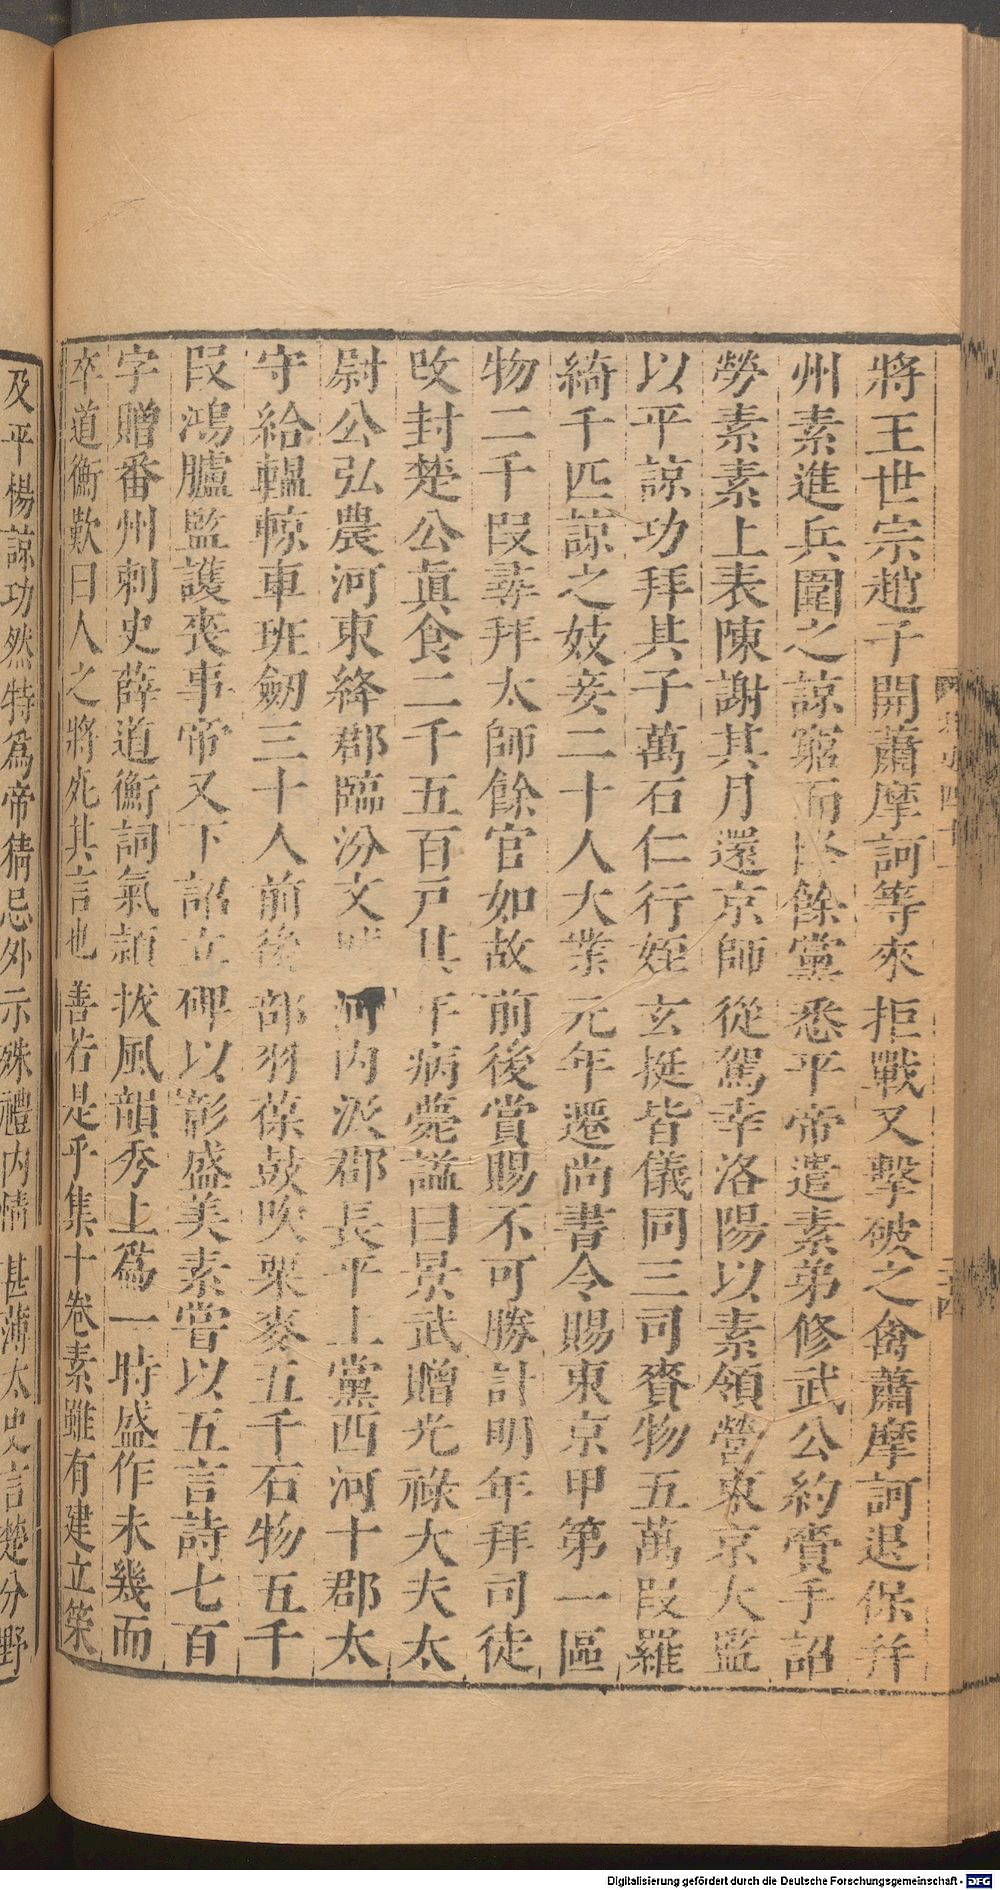 將王世宗趙子開蕭摩訶等來拒戰又擊破之禽蕭摩訶退保并
州素進兵圍之諒窮而降餘黨悉平帝遣素弟修武公約賫手詔
勞素素上表陳謝其月還京師從駕幸洛陽以素領營東京大監
以平諒功拜其子萬石仁行姪玄挺皆儀同三司賚物五萬段羅
綺千匹諒之妓妾二十人大業元年遷尚書令賜東京甲第一區
物二千段尋拜太師餘官如故前後賞賜不可勝計明年拜司徒
改封楚公眞食二千五百戸其年病薨謚曰景武贈光祿大夫太
尉公弘農河東絳郡臨汾文城河內汲郡長平上黨西河十郡太
守給轀輬車班劒三十人前後部羽葆鼓吹粟麥五千石物五千
段鴻臚監護喪事帝又下詔立碑以彰盛美素嘗以五言詩七百
字贈番州刺史薛道衡詞氣頴拔風韻秀上爲一時盛作未幾而
卒道衡歎曰人之將死其言也善若是乎集十卷素雖有建立策
及平楊諒功然特爲帝猜忌外示殊禮內情甚薄太史言楚分野
Digitalisierung gefördert durch die Deutsche Forschungsgemeinschaft - DFG